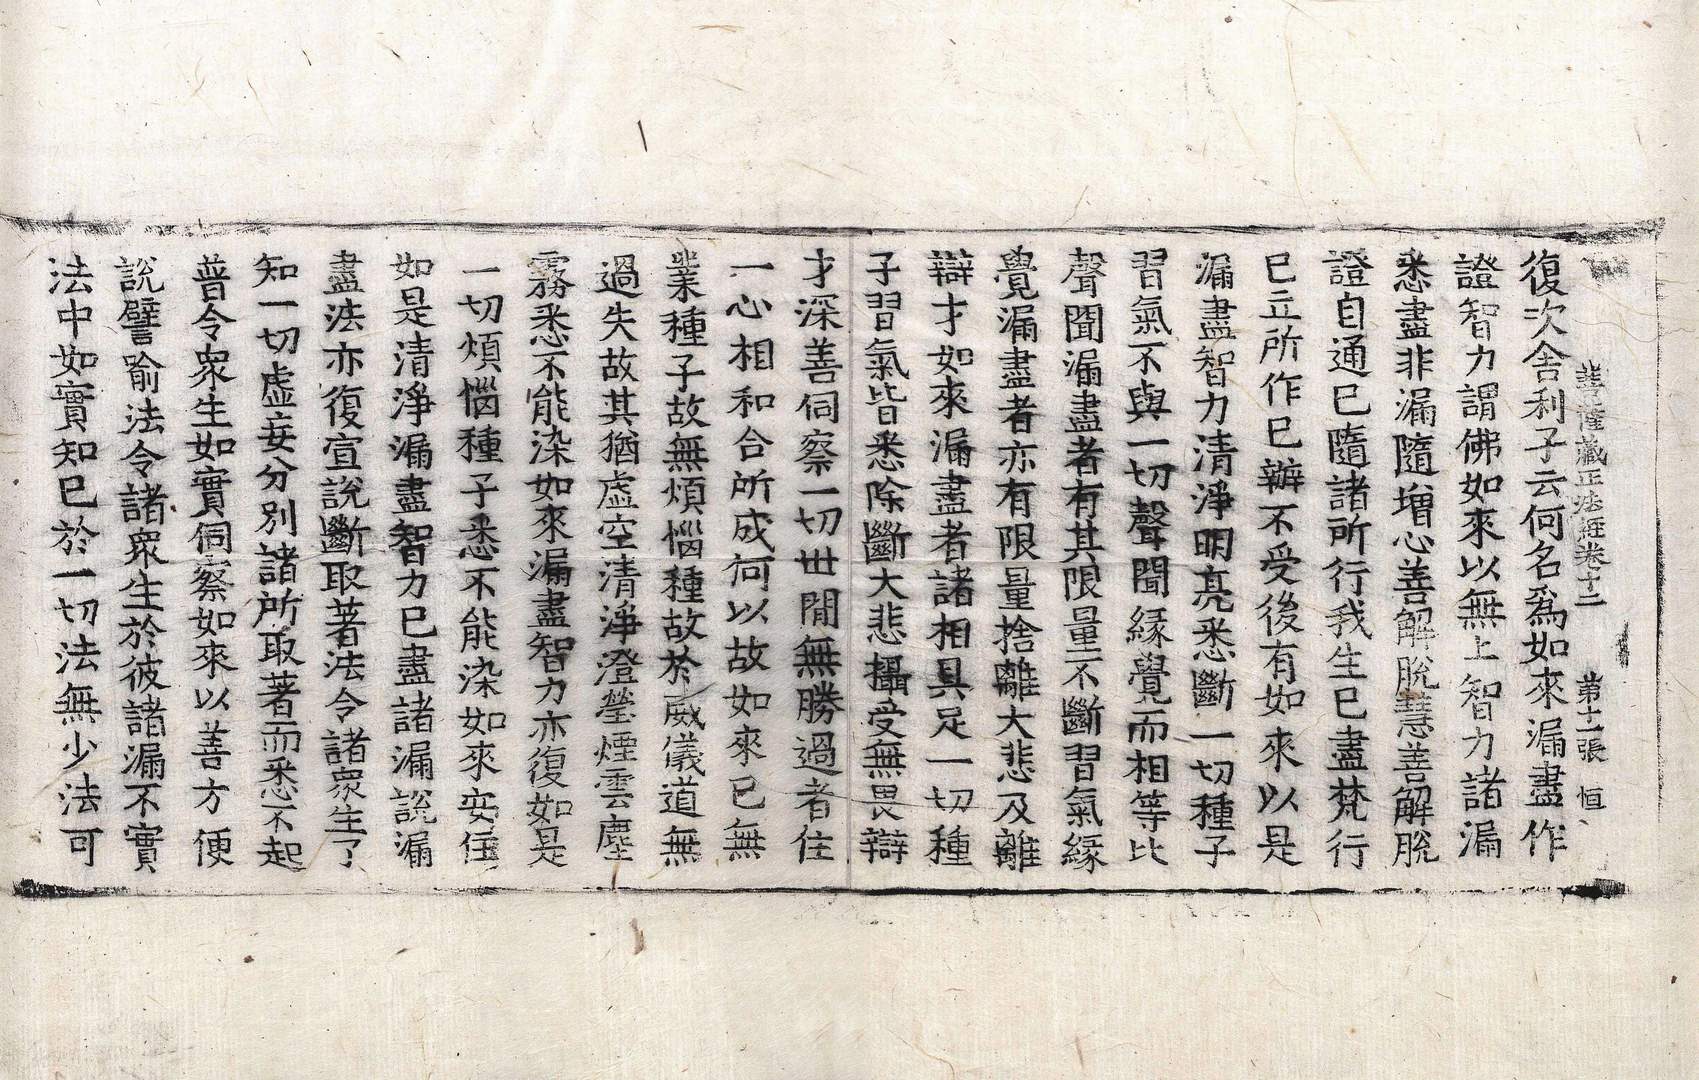 菩薩藏正法經卷十二 第十一張 恒
復次舍利子云何名爲如來漏盡作
證智力謂佛如來以無上智力諸漏
悉盡非漏隨增心善解脫慧善解脫
證自通已隨諸所行我生已盡梵行
已立所作已辦不受後有如來以是
漏盡智力清淨明亮悉斷一切種子
習氣不與一切聲聞緣覺而相等比
聲聞漏盡者有其限量不斷習氣緣
覺漏盡者亦有限量捨離大悲及離
辯才如來漏盡者諸相具足一切種
子習氣皆悉除斷大悲攝受無畏辯
才深善伺察一切世閒無勝過者住
一心相和合所成何以故如來已無
業種子故無煩惱種故於威儀道無
過失故其猶虛空清淨澄瑩煙雲塵
霧悉不能染如來漏盡智力亦復如是
一切煩惱種子悉不能染如來安住
如是清淨漏盡智力已盡諸漏說漏
盡法亦復宣說斷取著法令諸衆生了
知一切虛妄分別諸所取著而悉不起
普令衆生如實伺察如來以善方便
說譬喻法令諸衆生於彼諸漏不實
法中如實知已於一切法無少法可